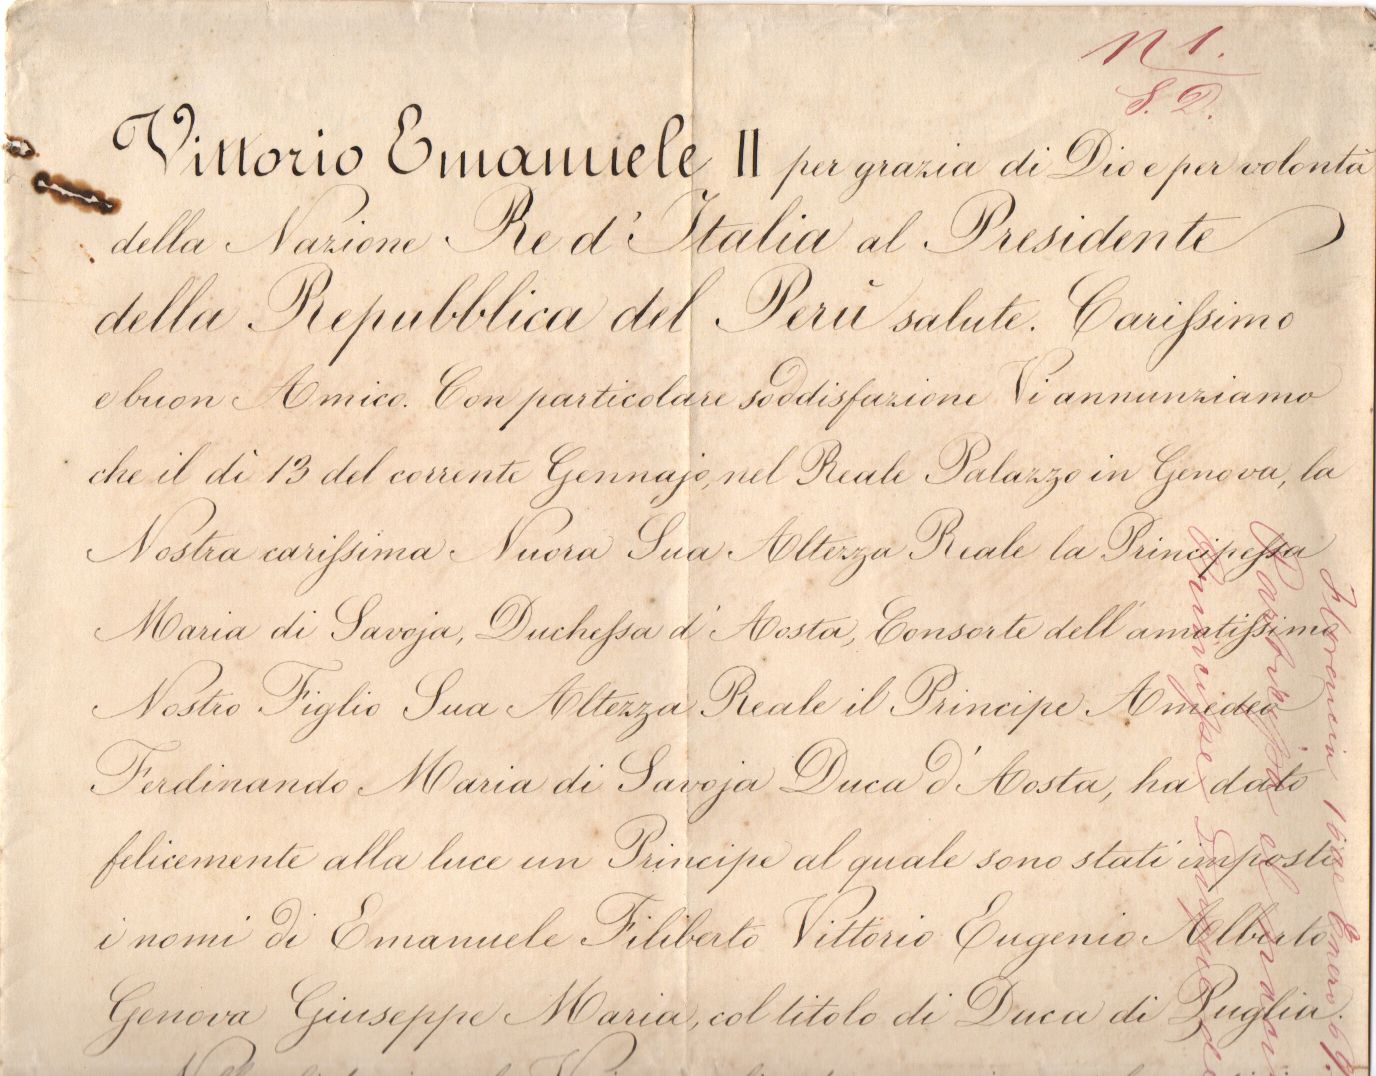 N 1.
S. D.
Vittorio Emanuele II per grazia di Dio e per volontà
della Nazione Re d'Italia al Presidente
della Repubblica del Perù salute. Carissimo
e buon Amico. Con particolare soddisfazione Vi annunziamo
che il dì 13 del corrente Gennajo, nel Reale Palazzo in Genova, la
Nostra carissima Nuora Sua Altezza Reale la Principessa
Maria di Savoja, Duchessa d'Aosta, Consorte dell'amatissimo
Nostro Figlio Sua Altezza Reale il Principe Amedeo
Ferdinando Maria di Savoja Duca d'Aosta, ha dato
felicemente alla luce un Principe al quale sono stati imposti
i nomi di Emanuele Filiberto Vittorio Eugenio Alberto
Genova Giuseppe Maria, col titolo di Duca di Puglia.
Florencia Enero 69.
Participa el